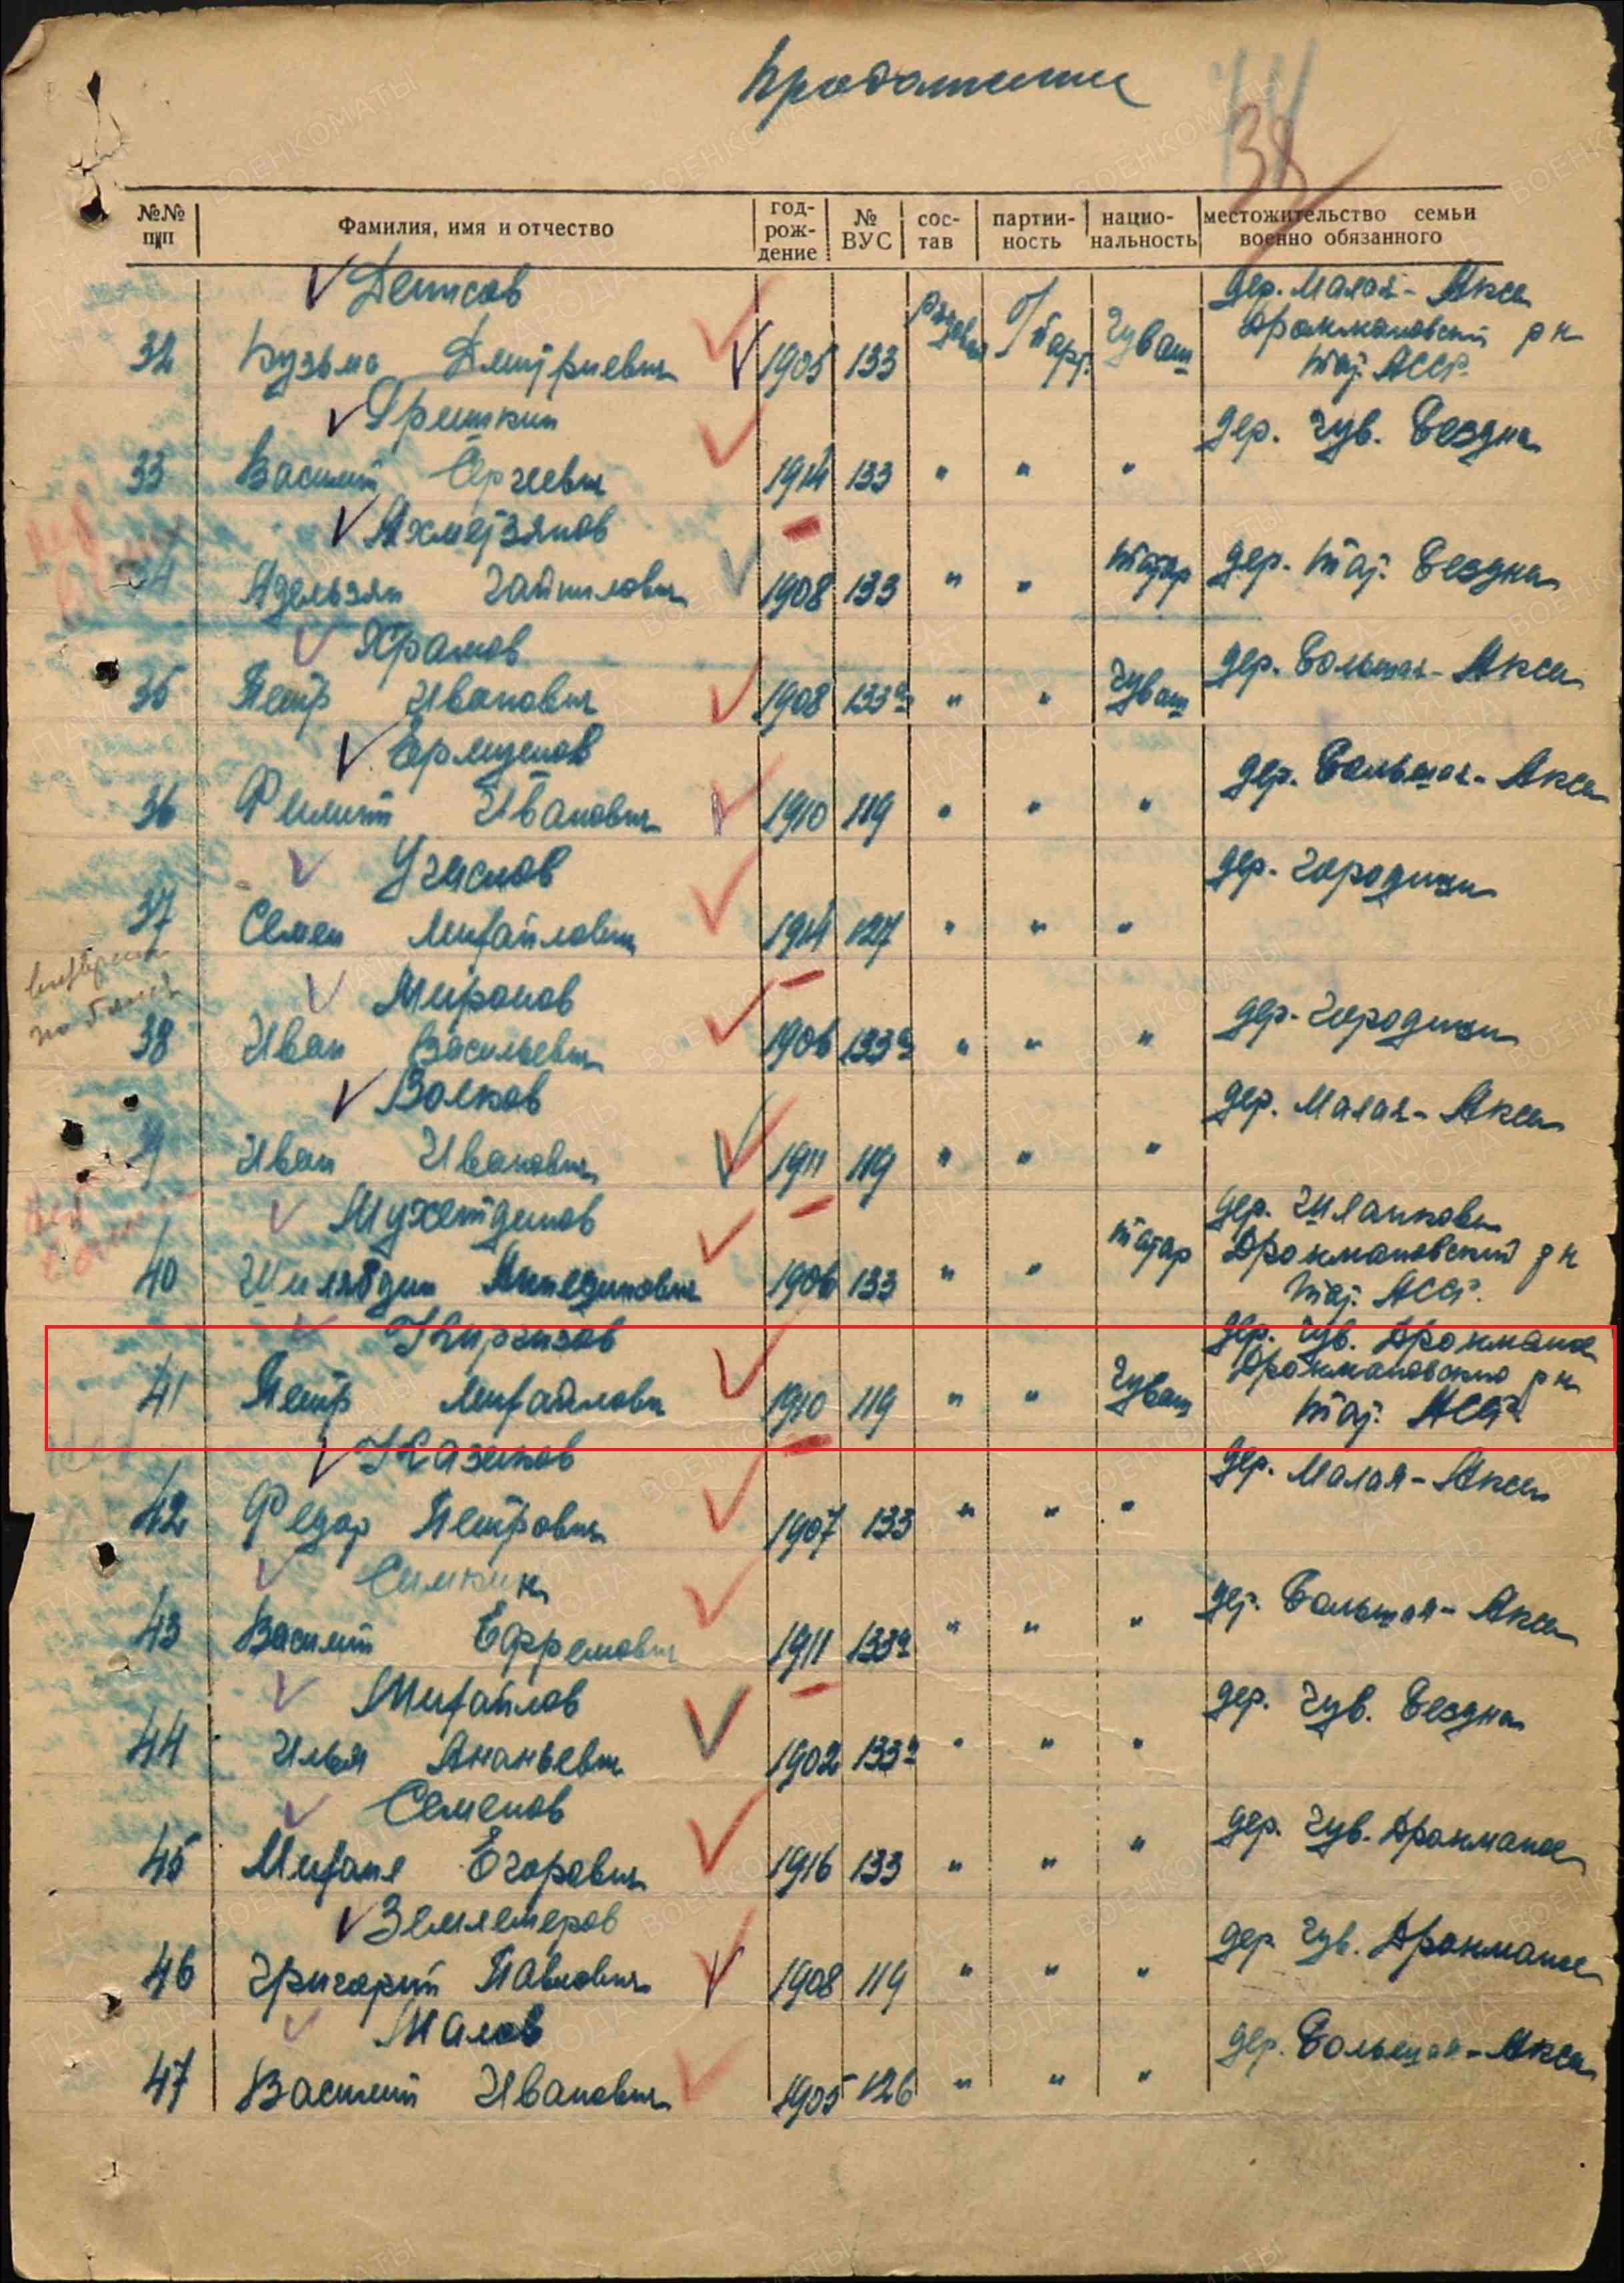 Продолжение
44
38
№№ п/п
Фамилия, имя и отчество
год-рож-дение
№ ВУС
сос-тав
партий-ность
нацио-нальность
местожительство семьи военно обязанного
Денисов дер. Малая-Акса
32 Кузьма Дмитриевич 1905 133 рядовой б/парт. Чуваш Дрожжановский р-н
Тат. АССР.
Гришкин дер. Чув. Бездна
33 Василий Сергеевич 1914 133 " " "
Ахметзянов
34 Адельзян 1908 133 " " татар дер. Тат. Бездна
Храмов дер. Большая-Акса
35 Петр Иванович 1908 133а " " Чуваш
дер. Большая-Акса
36 Филипп Иванович 1910 119 " " "
дер. Городищи
37 Семен Михайлович 1914 127 " " "
Миронов дер. Городищи
38 Иван Васильевич 1906 133а " " "
Волков дер. Малая-Акса
Иван Иванович 1911 119 " " "
Мухетдинов дер.
40 1906 133 " " татар Дрожжановский р-н
Тат. АССР.
Киргизов дер. Чув. Дрожжаное
41 Петр Михайлович 1910 119 " " Чуваш Дрожжановский р-н
Тат. АССР
Казаков дер. Малая-Акса
42 Федор Петрович 1907 133 " " "
Симкин дер. Большая-Акса
43 Василий Ефремович 1911 133а " " "
Михайлов дер. Чув. Бездна
44 Илья Ананьевич 1902 133а " " "
Семенов дер. Чув. Дрожжаное
45 Егорович 1916 133 " " "
Землемеров дер. Чув. Дрожжаное
46 Григорий Павлович 1908 119 " " "
Малов дер. Большая-Акса
47 Василий Иванович 1905 126 " " "
ПАМЯТЬ НАРОДА
ВОЕНКОМАТЫ